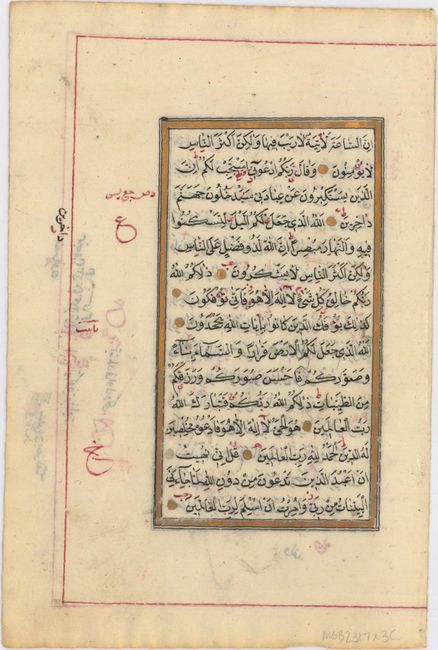 ان الساعة لآتية لا ريب فيها ولكن اكثر الناس
لا يؤمنون وقال ربكم ادعوني استجب لكم ان
الذين يستكبرون عن عبادتي سيدخلون جهنم
داخرين الله الذي جعل لكم الليل لتسكنوا
فيه والنهار مبصرا ان الله لذو فضل على الناس
ولكن اكثر الناس لا يشكرون ذلكم الله
ربكم خالق كل شيء لا اله الا هو فانى تؤفكون
كذلك يؤفك الذين كانوا بآيات الله يجحدون
الله الذي جعل لكم الارض قرارا والسماء بناء
وصوركم فاحسن صوركم ورزقكم
من الطيبات ذلكم الله ربكم فتبارك الله
رب العالمين هو الحي لا اله الا هو فادعوه مخلصين
له الدين الحمد لله رب العالمين قل اني نهيت
ان اعبد الذين تدعون من دون الله لما جاءني
البينات من ربي وامرت ان اسلم لرب العالمين
ع
داخرين
MGB2317x3C